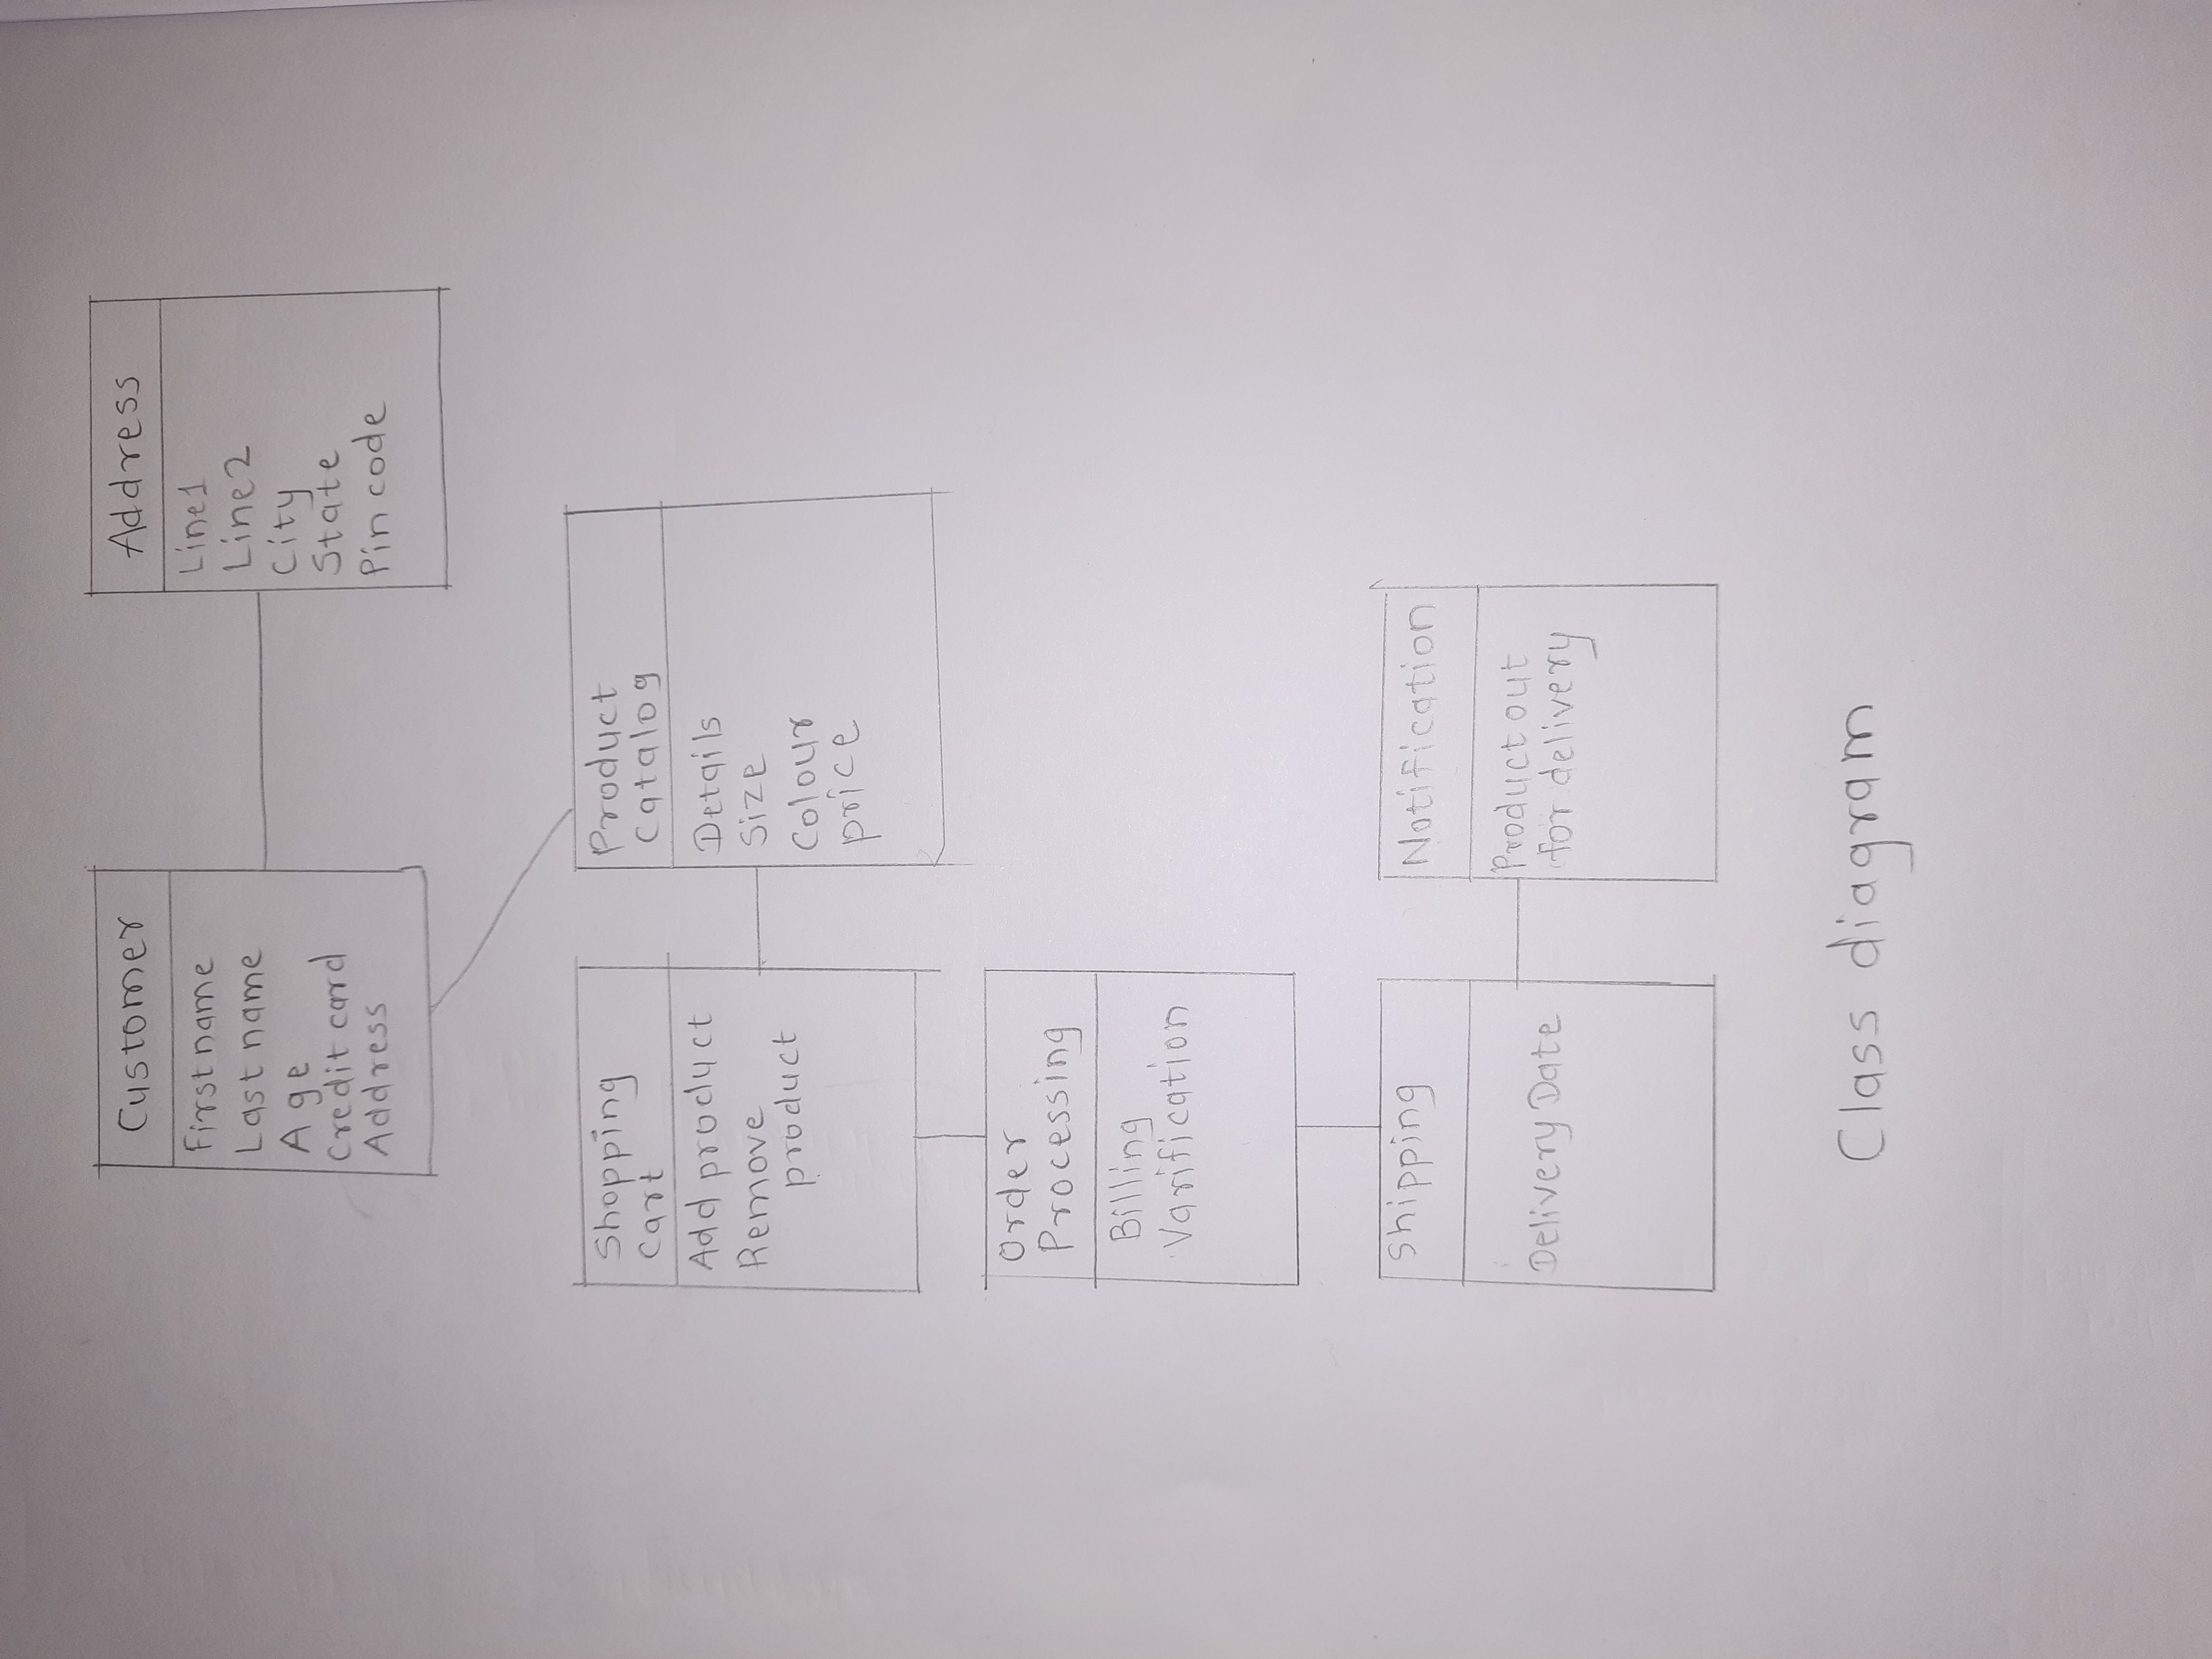 Customer
First name
Last name
Age
Credit card
Address
Address
Line1
Line2
City
State
Pin code
Shopping
Cart
Add product
Remove
product
Product
Catalog
Details
Size
Colour
price
Order
Processing
Billing
Varification
Shipping
Delivery Date
Notification
Product out
for delivery
Class diagram